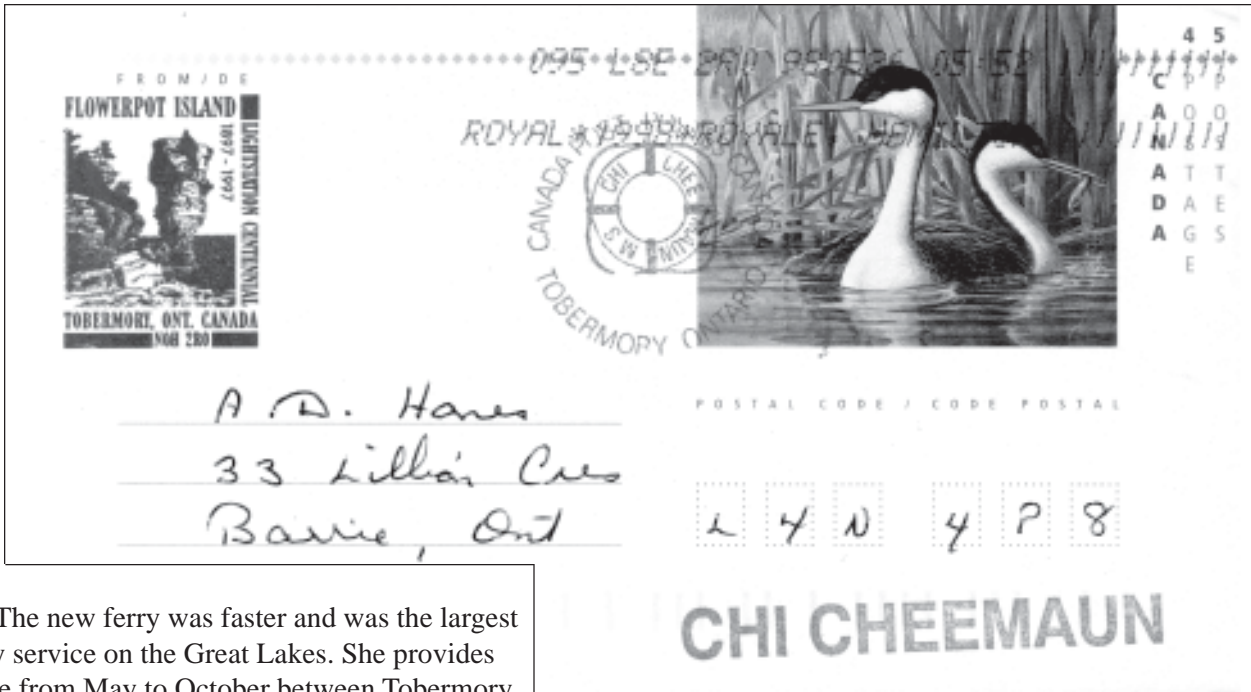 FROM/DE
FLOWERPOT ISLAND
LIGHTSTATION CENTENNIAL
1897-1997
TOBERMORY, ONT. CANADA
N0H 2R0
095 LSE 2R0 980526 05:52
ROYAL * 1998 * ROYALE,
CANADA
CHI CHEEMAUN
M S
TOBERMORY ONTARIO
45
CANADA
POSTAGE
POSTES
A. D. Hanes
33 Lillian Cres
Barrie, Ont
POSTAL CODE / CODE POSTAL
L4N 4P8
CHI CHEEMAUN
The new ferry was faster and was the largest
service on the Great Lakes. She provides
from May to October between Tobermory